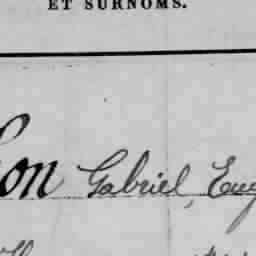 ET SURNOMS.
on Gabriel, Eug